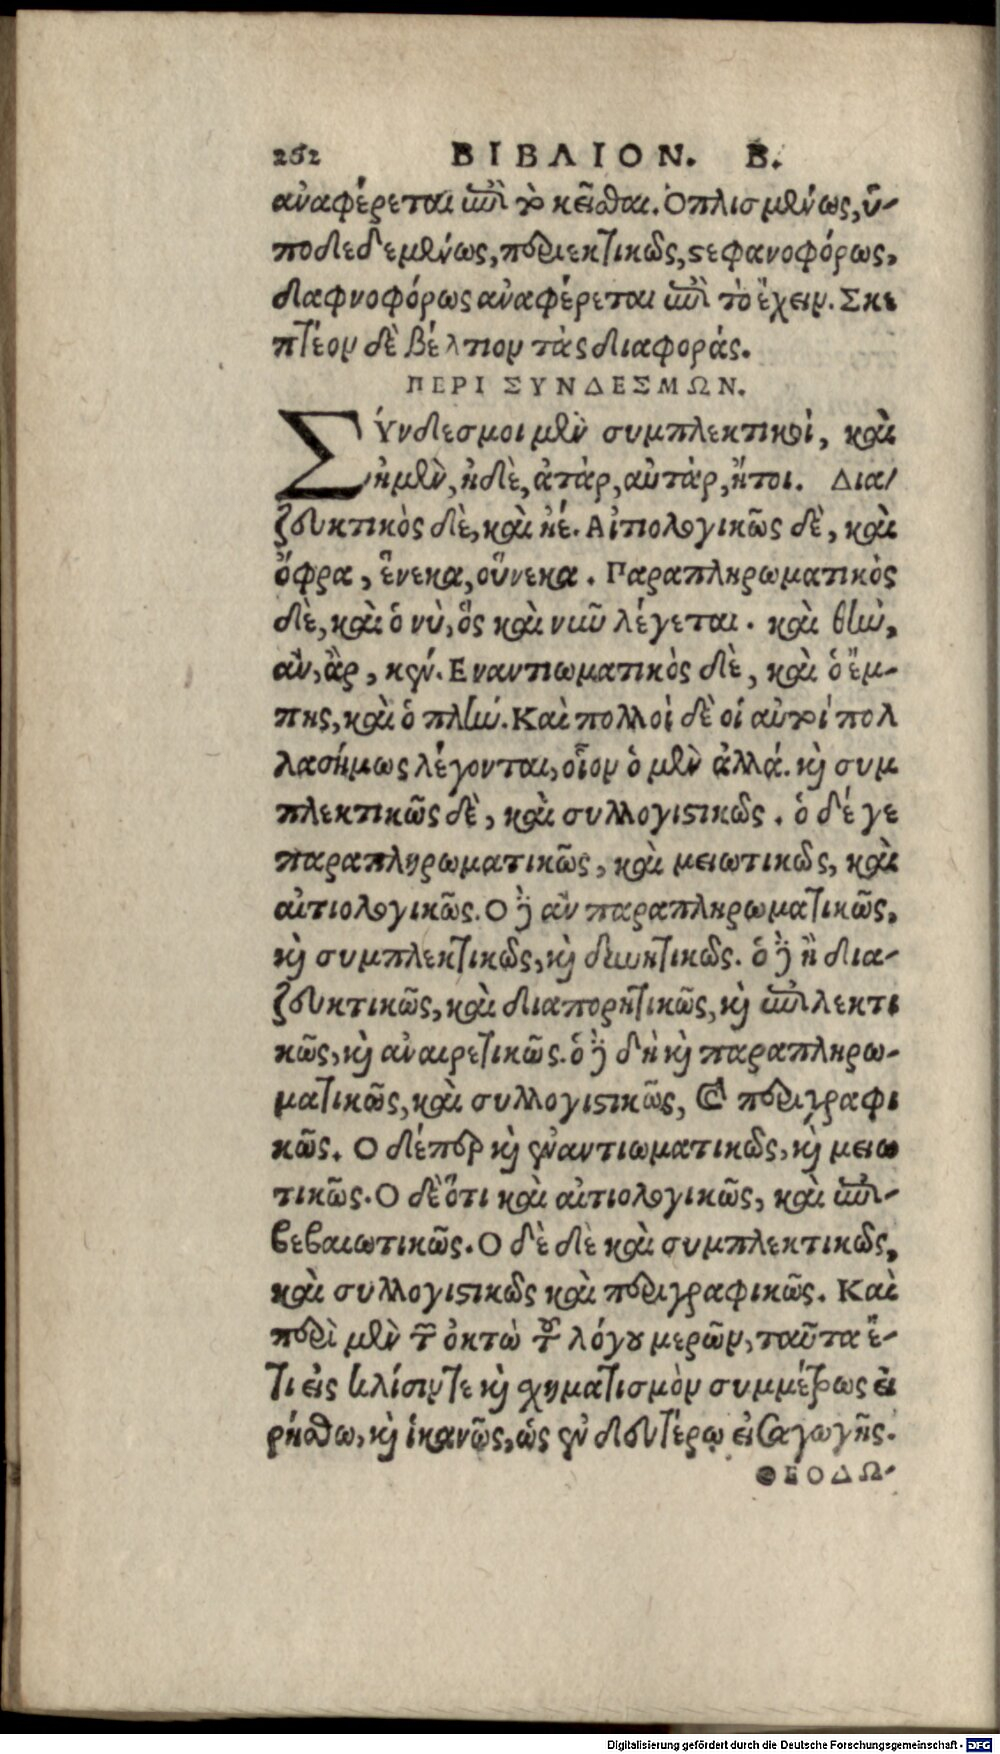 262 ΒΙΒΛΙΟΝ. Β.
ἀναφέρεται ἐπὶ τὸ κεῖσθαι. Ὁπλισμένως, ὑ-
ποδεδεμένως, περιεκτικῶς, στεφανοφόρως,
δαφνοφόρως ἀναφέρεται ἐπὶ τὸ ἔχειν. Σκε
πτέον δὲ βέλτιον τὰς διαφοράς.
ΠΕΡΙ ΣΥΝΔΕΣΜΩΝ.
Σύνδεσμοι μὲν συμπλεκτικοὶ, καὶ
ἠμὲν, ἠδὲ, ἀτὰρ, αὐτὰρ, ἤτοι. Δια/
ζευκτικὸς δὲ, καὶ ἠέ. Αἰτιολογικῶς δὲ, καὶ
ὄφρα, ἕνεκα, οὕνεκα. Παραπληρωματικὸς
δὲ, καὶ ὁ νὺ, ὃς καὶ νυῦ λέγεται. καὶ θὴν,
ἂν, ἂρ, κέν. Εναντιωματικὸς δὲ, καὶ ὁ ἔμ-
πης, καὶ ὁ πλήν. Καὶ πολλοὶ δὲ οἱ αὐτοὶ πολ
λασήμως λέγονται, οἷον ὁ μὲν ἀλλά. καὶ συμ
πλεκτικῶς δὲ, καὶ συλλογιστικῶς. ὁ δέ γε
παραπληρωματικῶς, καὶ μειωτικῶς, καὶ
αἰτιολογικῶς. Ο δὲ ἂν παραπληρωματικῶς,
καὶ συμπλεκτικῶς, καὶ δυνητικῶς. ὁ δὲ ἢ δια-
ζευκτικῶς, καὶ διαπορητικῶς, καὶ ἐπιλεκτι
κῶς, καὶ ἀναιρετικῶς. ὁ δὲ δὴ καὶ παραπληρω-
ματικῶς, καὶ συλλογιστικῶς, καὶ περιγραφι
κῶς. Ο δέπερ καὶ ἐναντιωματικῶς, καὶ μειω
τικῶς. Ο δὲ ὅτι καὶ αἰτιολογικῶς, καὶ ἐπι-
βεβαιωτικῶς. Ο δὲ δὲ καὶ συμπλεκτικῶς,
καὶ συλλογιστικῶς καὶ περιγραφικῶς. Καὶ
περὶ μὲν τῶν ὀκτὼ τοῦ λόγου μερῶν, ταῦτα ἔ-
τι εἰς κλίσιν τε καὶ σχηματισμὸν συμμέτρως εἰ
ρήσθω, καὶ ἱκανῶς, ὡς ἐν δευτέρῳ εἰσαγωγῆς.
ΘΕΟΔΩ-
Digitalisierung gefördert durch die Deutsche Forschungsgemeinschaft - DFG